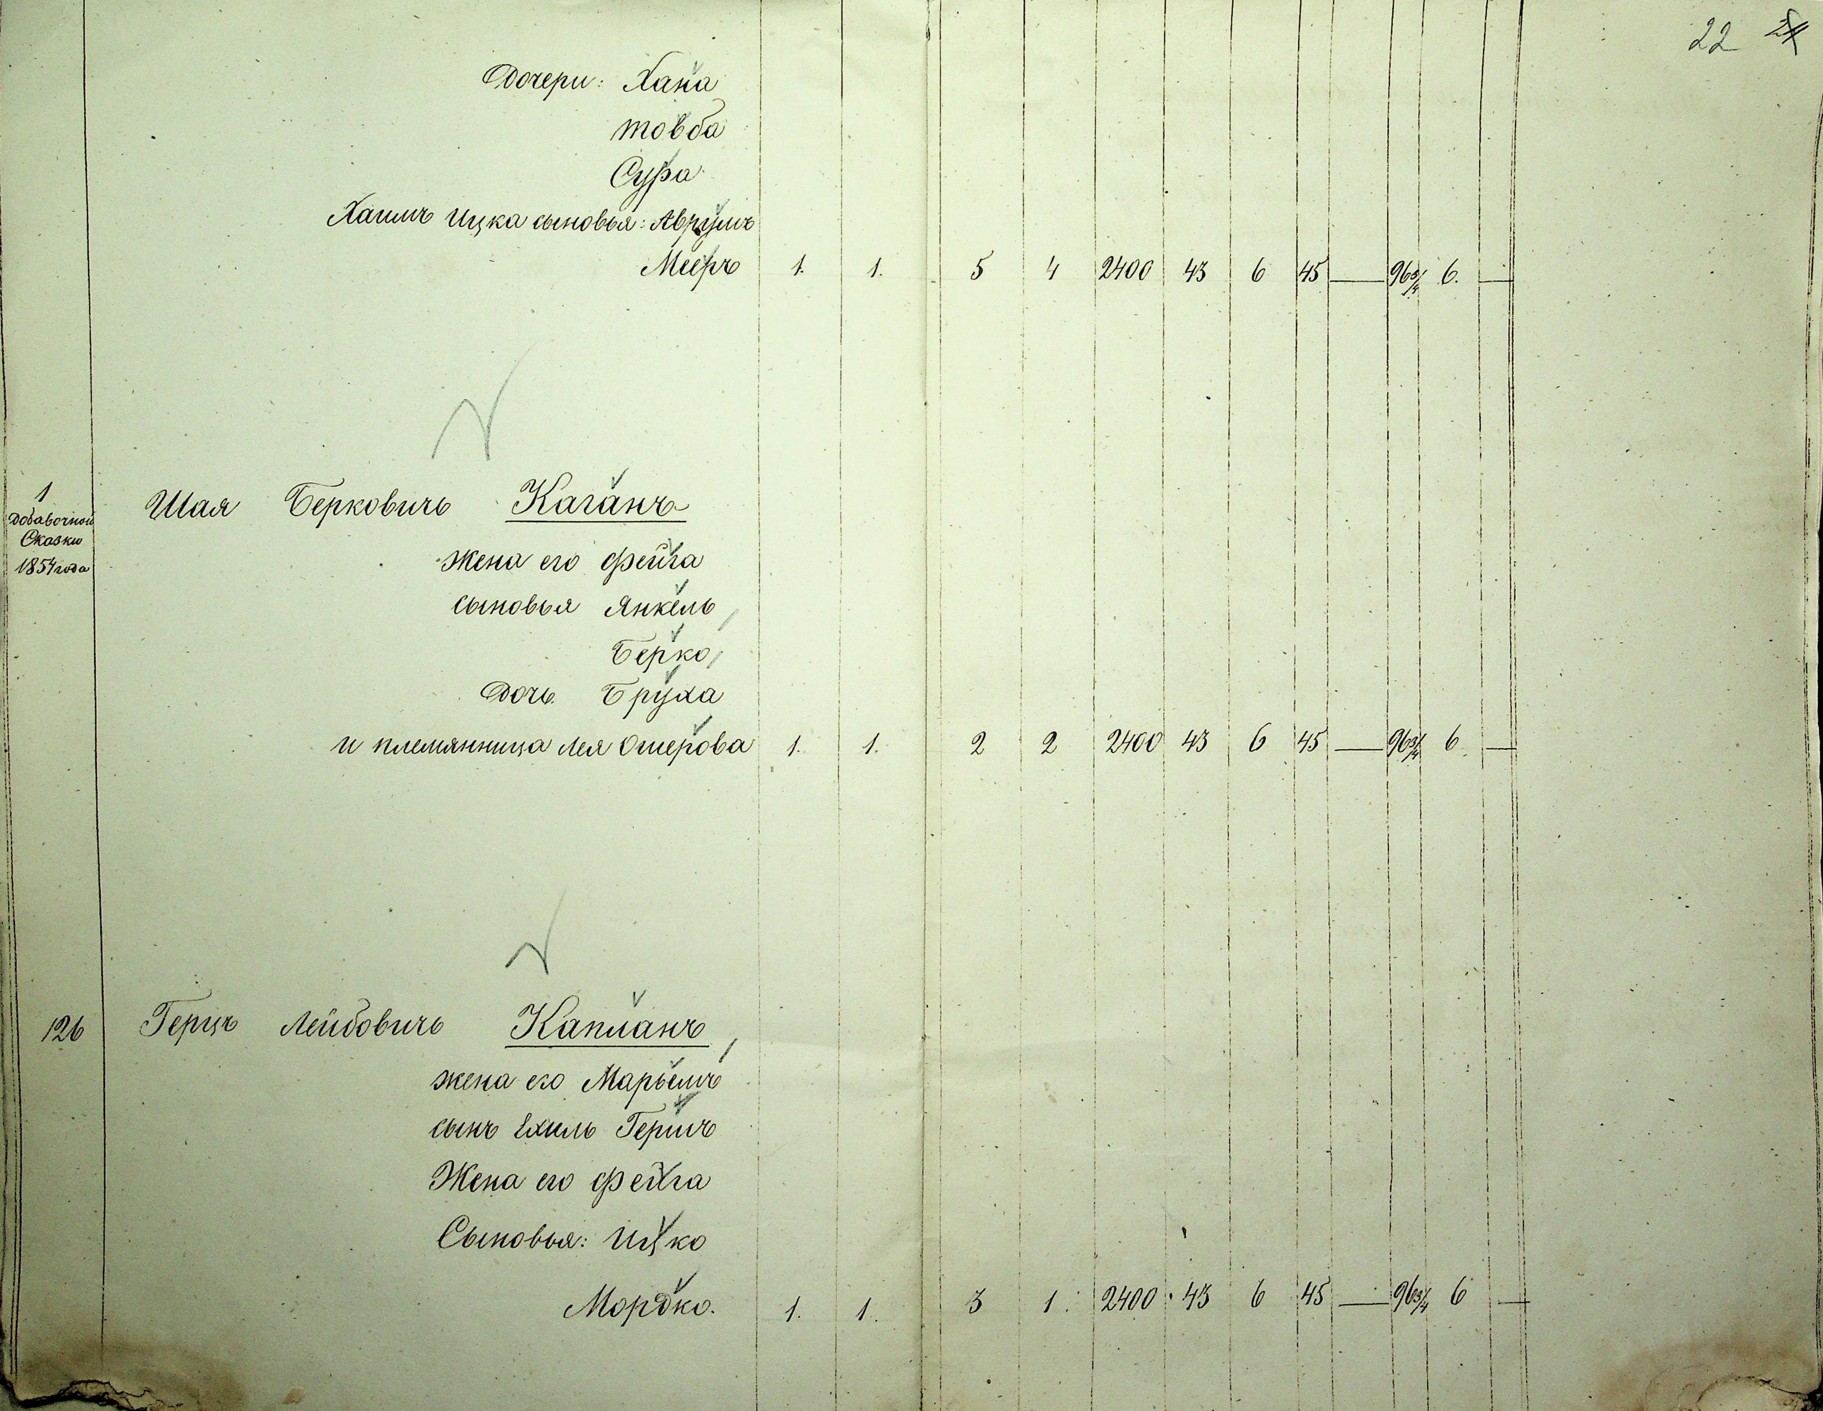 22
Дочери: Хана
товба
Сура
Хаимъ Ицка сыновья: Аврумъ
Мееръ 1. 1. 5 4 2400 43 6 45 — 96 3/4 6. —
1 Шая Берковичъ Каганъ
Добавочной
Сказки
1854 года
жена его фейга
сыновья Янкель
Берко
Дочь Бруха
и племянница Лея Ошерова 1. 1. 2 2 2400 43 6 45 — 96 3/4 6 —
126 Герцъ Лейбовичъ Капланъ
жена его Марьемъ
сынъ Ехиль Гершъ
Жена его фейга
Сыновья: Ицко
Мордко. 1. 1. 3 1. 2400 43 6 45 — 96 3/4 6 —